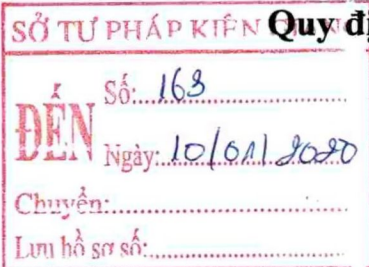 SỞ TƯ PHÁP KIÊN Quy đị
ĐẾN
Số: 163
Ngày: 10/01/2020
Chuyển:
Lưu hồ sơ số: